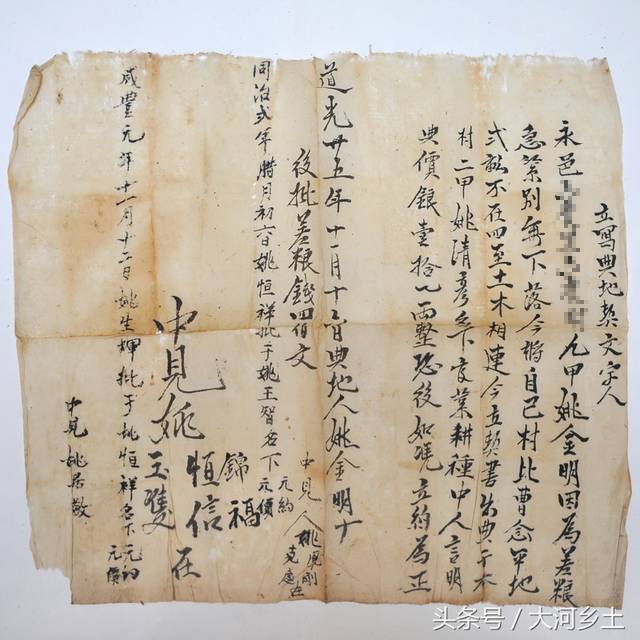 立寫典地契文字人
永邑九甲姚金明因為差粮
急緊別無下落今將自己村北曹念平地
弍畝不在四至土木相連今立契書出典于本
村二甲姚清彥名下食業耕種中人言明
典價銀壹拾八兩整恐後如凴立約為正
道光廿五年十一月十二日典地人姚金明十
中見人姚 剛
克
後批差粮錢四佰文
同治弍年腊月初六日姚恒祥批于姚王智名下
元約
元價
中見姚
錦福
恒信
玉雙
在
咸豐元年十一月十二日姚生輝批于姚恒祥名下
元約
元價
中見 姚
头条号／大河乡土